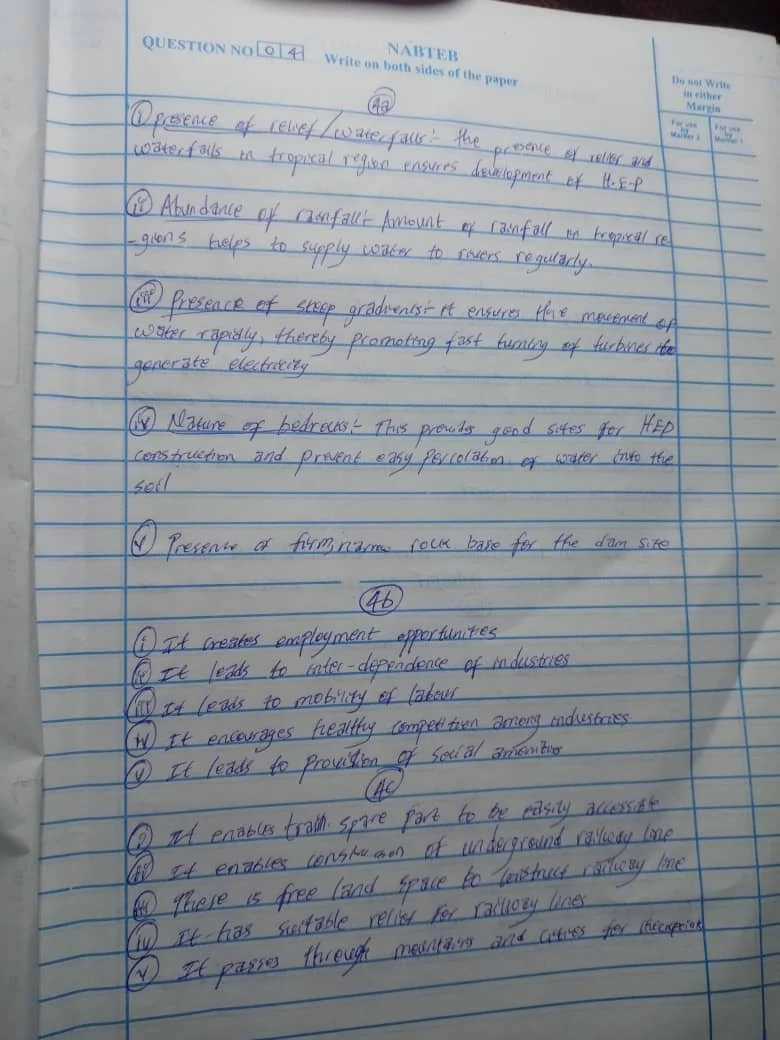 NABTEB
QUESTION NO 04 Write on both sides of the paper
Do not Write
in either
Margin
For use by Marker 2 For use by Marker 1
4a
(i) presence of relief/waterfalls:- the presence of relief and
waterfalls in tropical region ensures development of H.E.P
(ii) Abundance of rainfall:- Amount of rainfall in tropical re-
-gions helps to supply water to rivers regularly.
(iii) Presence of steep gradients:- It ensures the movement of
water rapidly, thereby promoting fast turning of turbines to
generate electricity
(iv) Nature of bedrocks:- This provides good sites for HEP
construction and prevent easy percolation of water into the
soil
(v) Presence of firm, narrow rock base for the dam site
4b
(i) It creates employment opportunities
(ii) It leads to inter-dependence of industries
(iii) It leads to mobility of labour
(iv) It encourages healthy competition among industries.
(v) It leads to provision of social amenities
4c
(i) It enables train spare part to be easily accessible
(ii) It enables construction of underground railway line
(iii) There is free land space to construct railway line
(iv) It has suitable relief for railway lines
(v) It passes through mountains and for